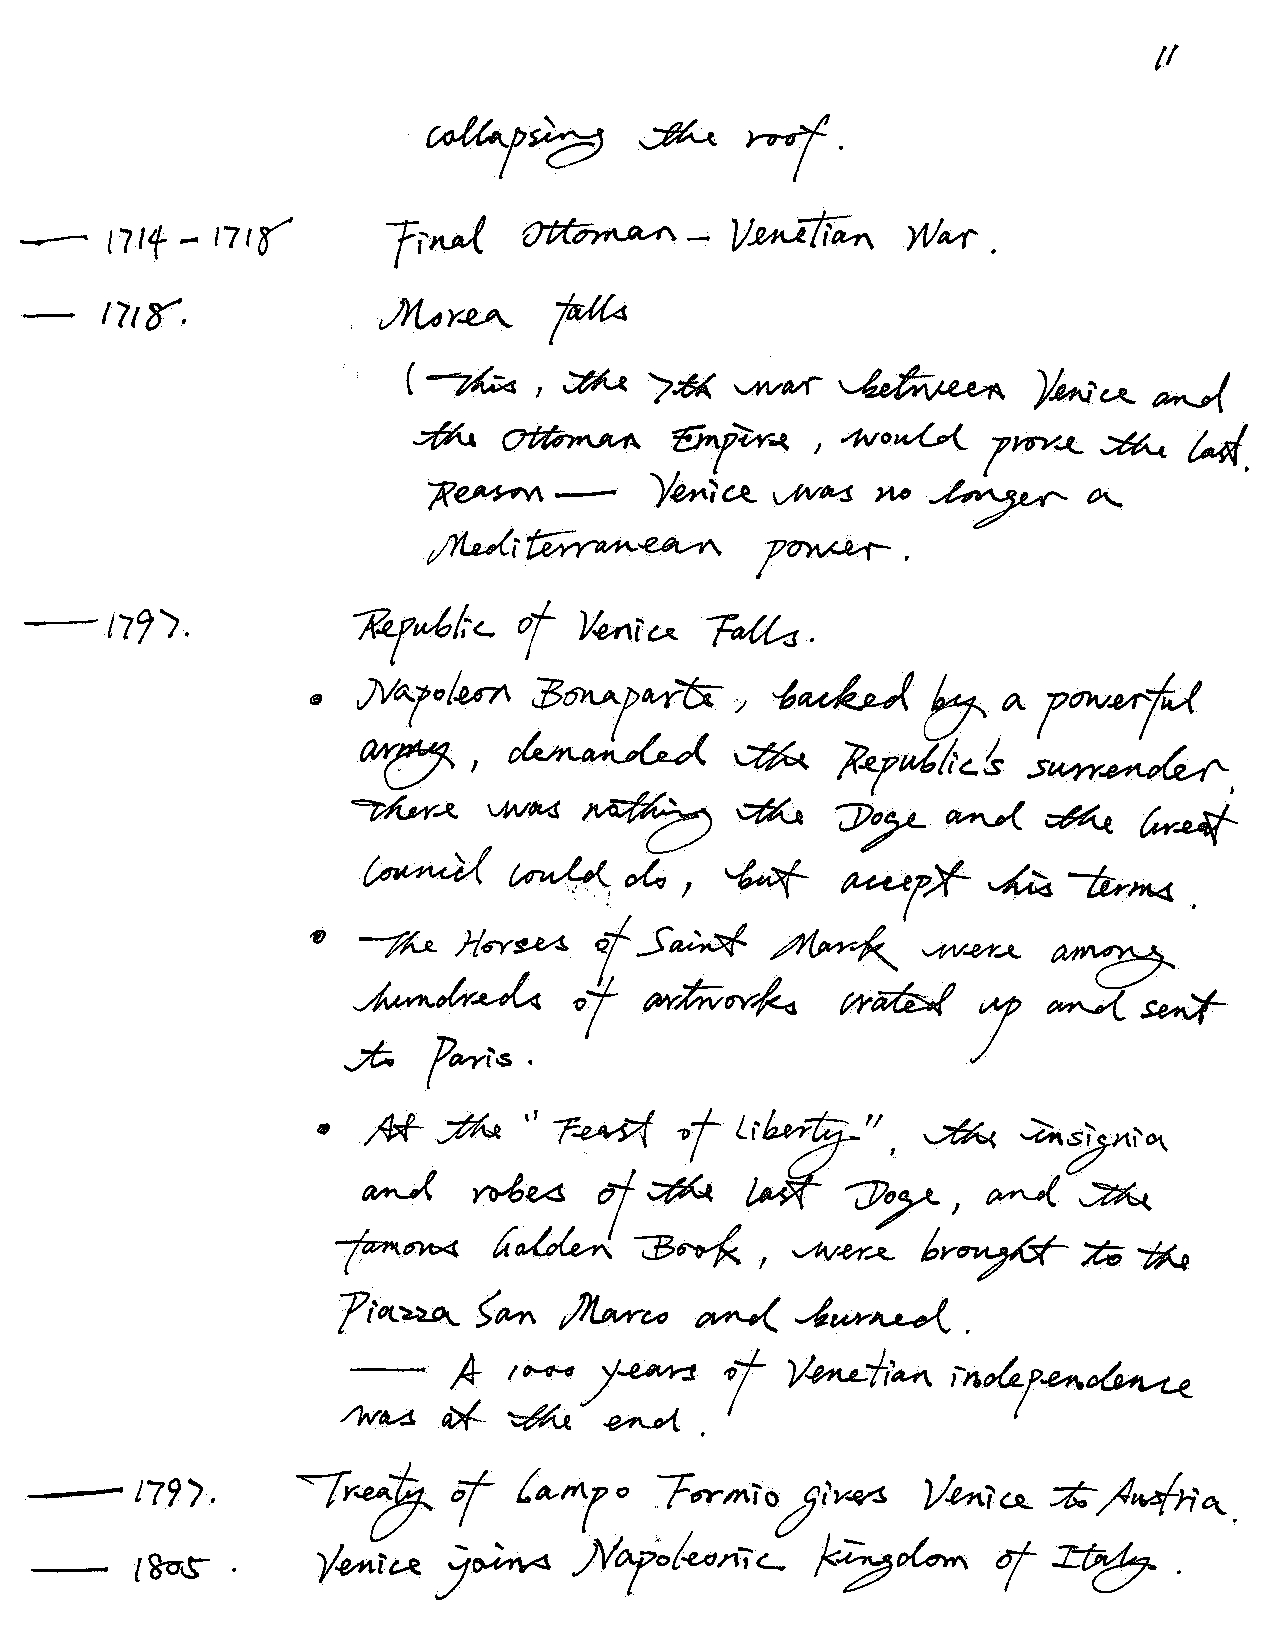 11
collapsing the roof.
— 1714 - 1718 Final Ottoman - Venetian War.
— 1718. Morea falls
(This, the 7th war between Venice and
the Ottoman Empire, would prove the last.
Reason — Venice was no longer a
Mediterranean power.
— 1797. Republic of Venice Falls.
• Napoleon Bonaparte, backed by a powerful
army, demanded the Republic's surrender.
There was nothing the Doge and the Great
Council could do, but accept his terms.
• The Horses of Saint Mark were among
hundreds of artworks crated up and sent
to Paris.
• At the "Feast of Liberty", the insignia
and robes of the last Doge, and the
famous Golden Book, were brought to the
Piazza San Marco and burned.
— A 1000 years of Venetian independence
was at the end.
— 1797. Treaty of Campo Formio gives Venice to Austria.
— 1805. Venice joins Napoleonic Kingdom of Italy.